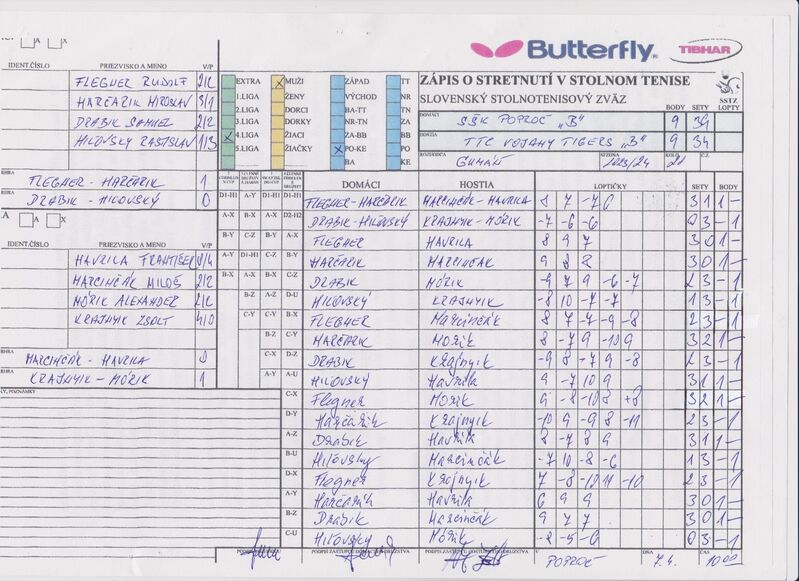 Butterfly
TIBHAR
A X
IDENT.ČÍSLO PRIEZVISKO A MENO V/P
FLEGNER RUDOLF 2/2
HARČARIK MIROSLAV 3/1
DRABIK SAMUEL 2/2
HILOVSKÝ RASTISLAV 1/3
FLEGNER - HARČARIK 1
DRABIK - HILOVSKÝ 0
A X
IDENT.ČÍSLO PRIEZVISKO A MENO V/P
HAVRILA FRANTIŠEK 0/4
MARCINČÁK MILOŠ 2/2
MÓRIK ALEXANDER 2/2
KRAJNYIK ZSOLT 4/0
MARCINČÁK - HAVRILA 0
KRAJNYIK - MÓRIK 1
POZNÁMKY
EXTRA MUŽI ZÁPAD TT
1.LIGA ŽENY VÝCHOD NR
2.LIGA DORCI BA-TT TN
3.LIGA DORKY NR-TN ZA
4.LIGA ŽIACI ZA-BB BB
5.LIGA ŽIAČKY PO-KE PO
BA KE
ZÁPIS O STRETNUTÍ V STOLNOM TENISE
SLOVENSKÝ STOLNOTENISOVÝ ZVÄZ
BODY SETY SSTZ LOPTY
DOMÁCI SŠK POPROČ „B" 9 34
HOSTIA TTC VOJANY TIGERS „B" 9 34
ROZHODCA SEZÓNA 2023/24 KOLO Č.Z.
DOMÁCI HOSTIA LOPTIČKY SETY BODY
D1-H1 A-Y D1-H1 D1-H1 FLEGNER-HARČARIK MARCINČÁK-HAVRILA 8 7 -7 6 3 1 1 -
A-X B-X A-X D2-H2 DRABIK-HILOVSKÝ KRAJNYIK-MÓRIK -7 -6 -6 0 3 - 1
B-Y C-Z B-Y A-X FLEGNER HAVRILA 8 9 7 3 0 1 -
A-Y D1-H1 C-Z B-Y HARČARIK MARCINČÁK 9 8 2 3 0 1 -
B-X A-X B-X C-Z DRABIK MÓRIK 7 9 -6 -7 2 3 - 1
B-Z A-Z D-U HILOVSKÝ KRAJNYIK -8 10 -7 -7 1 3 - 1
C-Y C-Y B-X FLEGNER MARCINČÁK 8 7 -7 -9 -8 2 3 - 1
B-Z C-Y HARČARIK MÓRIK 8 -7 9 -10 9 3 2 1 -
C-X D-Z DRABIK KRAJNYIK -9 8 -7 9 -8 2 3 - 1
A-Y A-U HILOVSKÝ HAVRILA 9 -7 10 9 3 1 1 -
C-X Flegner Mórik 9 -8 -10 8 +8 3 2 1 -
D-Y Harčarik Krajnyik -10 9 -9 8 -11 2 3 - 1
A-Z Drabik Havrila 8 -7 8 9 3 1 1 -
B-U Hilovský Marcinčák -7 10 -8 -6 1 3 - 1
D-X Flegner Krajnyik 7 -8 -10 11 -10 2 3 - 1
A-Y Harčarik Havrila 6 9 9 3 0 1 -
B-Z Drabik Marcinčák 9 7 7 3 0 1 -
C-U Hilovský Mórik -8 -5 -6 0 3 - 1
PODPIS ZÁSTUPCU DOMÁCEHO DRUŽSTVA PODPIS ZÁSTUPCU HOSŤUJÚCEHO DRUŽSTVA V POPROČ DŇA 7.4. ČAS 10:00